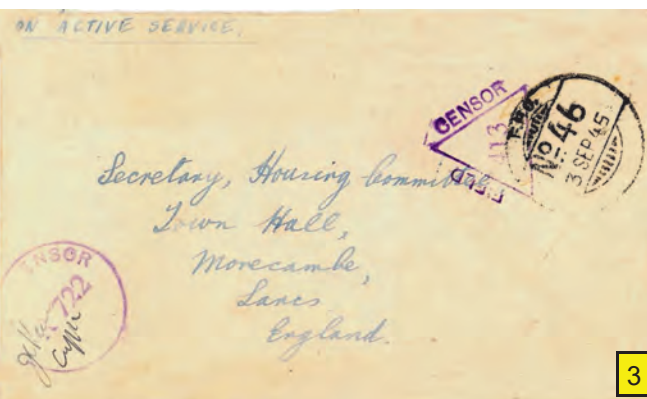 ON ACTIVE SERVICE.
CENSOR
413
FIELD
F.P.O.
No. 46
3 SEP 45
Secretary, Housing Committee
Town Hall,
Morecambe,
Lancs
England.
722
3